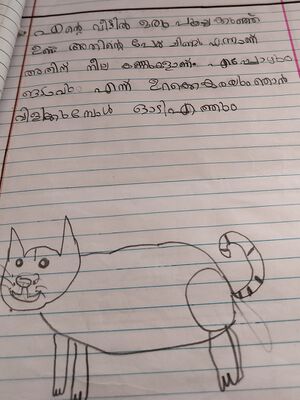 എന്റെ വീട്ടിൽ ഒരു പൂച്ച കുഞ്ഞ്
ഉണ്ട് അതിന്റെ പേര് ചിന്നു എന്നാണ്
അതിന് നീല കണ്ണുകളാണ്. എപ്പോഴും
എന്ന് ഉറക്കെകരയും ഞാൻ
വിളിക്കുമ്പോൾ ഓടിഎത്തും